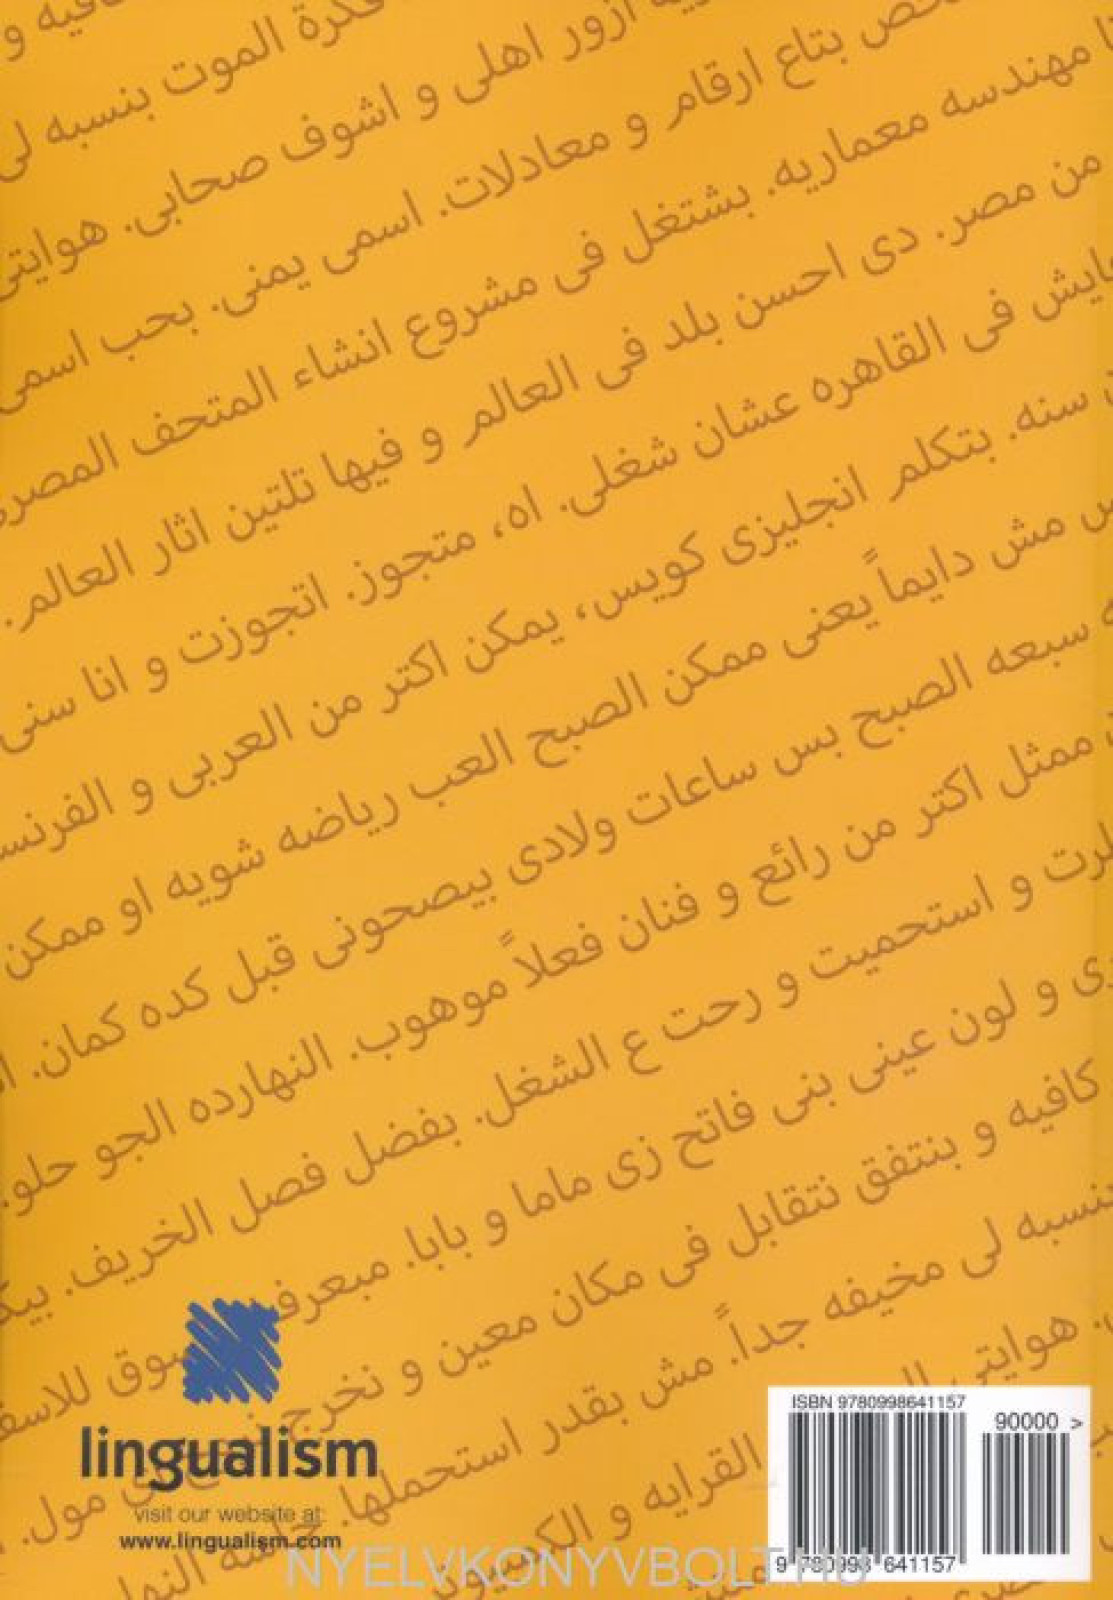 فكرة الموت بنسبه لى
ازور اهلى و اشوف صحابى. هوايتى
بتاع ارقام و معادلات. اسمى يمنى. بحب اسمى
مهندسه معماريه. بشتغل فى مشروع انشاء المتحف المصرى
من مصر. دى احسن بلد فى العالم و فيها تلتين اثار العالم.
عايش فى القاهره عشان شغلى. اه، متجوز. اتجوزت و انا سنى
سنه. بتكلم انجليزى كويس، يمكن اكتر من العربى و الفرنسـ
مش دايماً يعنى ممكن الصبح العب رياضه شويه او ممكن
سبعه الصبح بس ساعات ولادى بيصحونى قبل كده كمان.
ممثل اكتر من رائع و فنان فعلاً موهوب. النهارده الجو حلو.
و استحميت و رحت ع الشغل. بفضل فصل الخريف.
و لون عينى بنى فاتح زى ماما و بابا. مبعرفـ سوق للاسفـ
كافيه و بنتفق نتقابل فى مكان معين و نخرج مول.
بنسبه لى مخيفه جداً. مش بقدر استحملها. حاسه
هوايتى القرايه و
lingualism
visit our website at:
www.lingualism.com
ISBN 9780998641157
90000 >
9 780998 641157
NYELVKONYVBOLT.HU